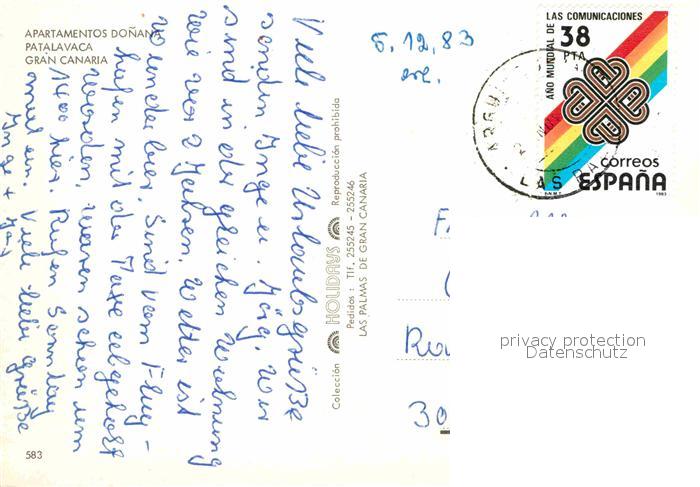 APARTAMENTOS DOÑANA
PATALAVACA
GRAN CANARIA
Viele liebe Urlaubsgrüße
senden Inge u. Jörg. Wir
sind in der gleichen Wohnung
wie vor 2 Jahren. Wetter ist
wunderbar. Sind vom Flug-
hafen mit der Taxe abgeholt
worden, waren schon um
1400 hier. Rufen Sonntag
mal an. Viele liebe Grüße
Inge + Jörg
583
Colección HOLIDAYS Reproducción prohibida
Pedidos: Tlf. 255245 - 255246
LAS PALMAS DE GRAN CANARIA
5.12.83
erl.
AÑO MUNDIAL DE LAS COMUNICACIONES
38
PTA
correos
ESPAÑA
1983
LAS PA
30
privacy protection
Datenschutz